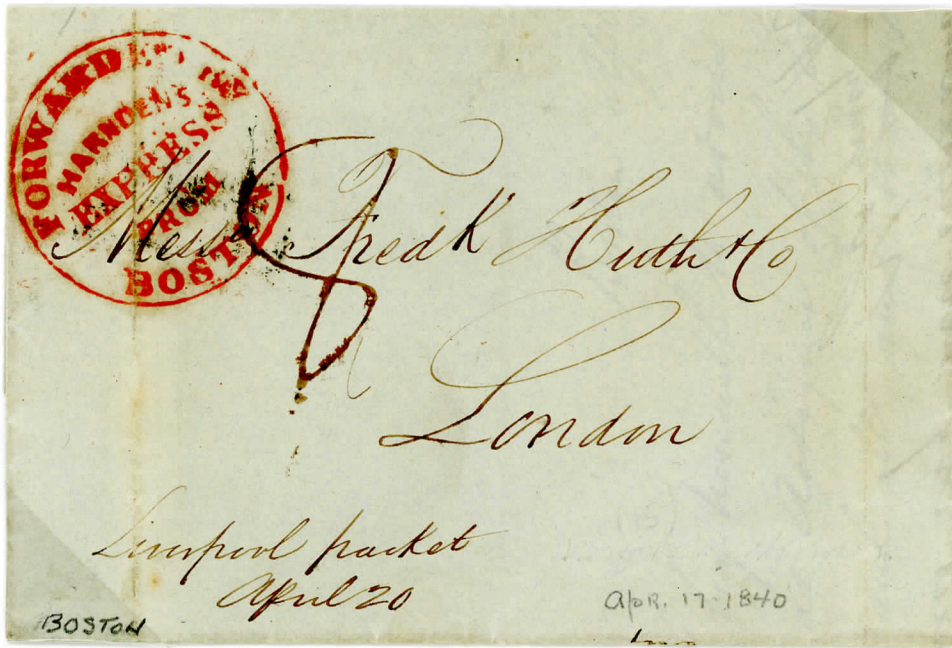 FORWARDED BY
HARNDEN'S
EXPRESS
FROM
BOSTON
Messrs Fredk Huth & Co
8
London
Liverpool packet
April 20
BOSTON
Apr. 17-1840